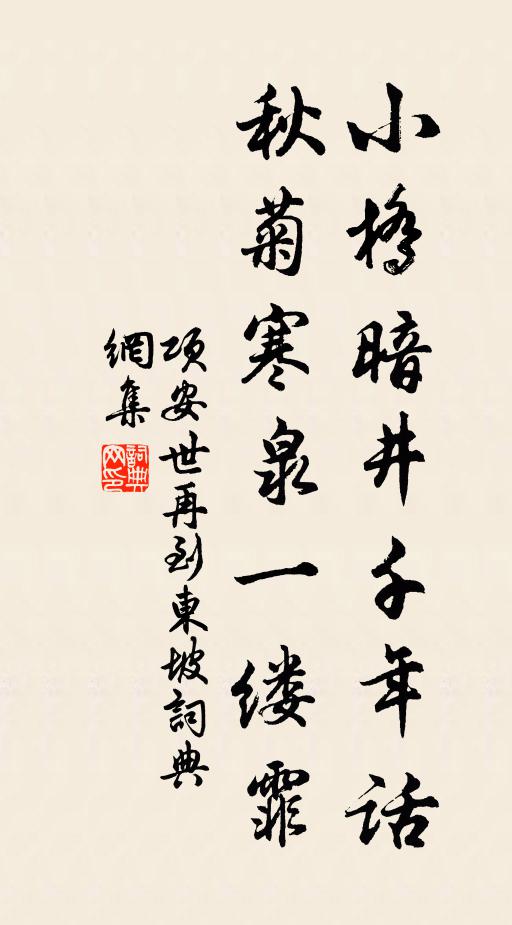 小橋暗井千年話
秋菊寒泉一缕霏
項安世再到東坡詞典
網集
詞典網印